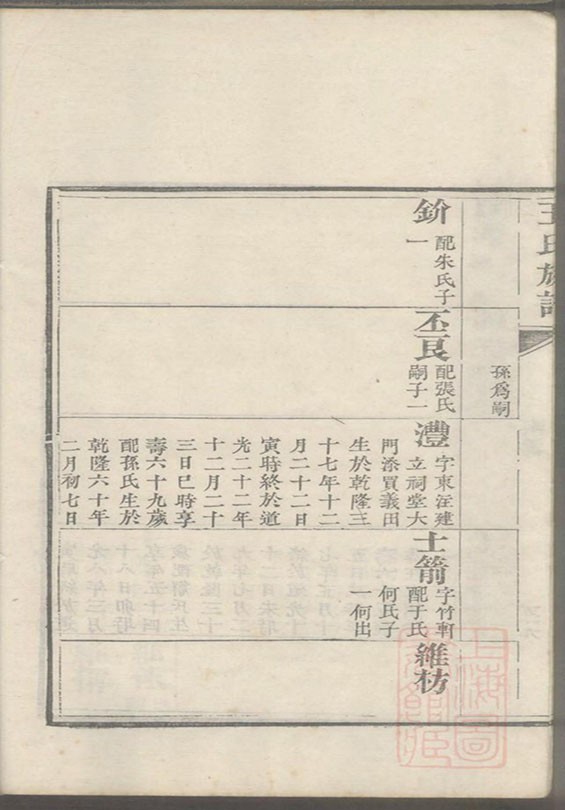 王氏族譜
孫爲嗣
鈫
配朱氏子
一
丕良
配張氏
嗣子一
灃
字東注建
立祠堂大
門添買義田
生於乾隆三
十七年十二
月二十二日
寅時終於道
光二十二年
十二月二十
三日巳時享
壽六十九歲
配孫氏生於
乾隆六十年
二月初七日
士箭
字竹軒
配于氏
何氏子
一何出
維枋